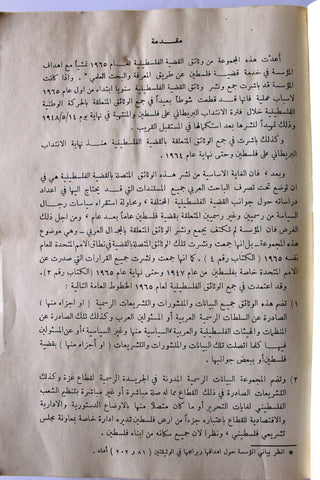 مقدمة
أُعدّت هذه المجموعة من وثائق القضية الفلسطينية لعام ١٩٦٥ تمشياً مع اهداف
المؤسسة في خدمة قضية فلسطين عن طريق المعرفة والبحث العلمي * . واذا كانت
المؤسسة قد باشرت جمع ونشر وثائق القضية الفلسطينية سنوياً ابتداء من اول عام ١٩٦٥
لاسباب عملية فانها قد قطعت شوطاً بعيداً في جمع الوثائق المتعلقة بالحركة الوطنية
الفلسطينية خلال فترة الانتداب البريطاني على فلسطين والمنتهية في نهاية يوم ١٩٤٨/٥/١٤
وذلك تمهيداً لنشرها بعد استكمالها في المستقبل القريب .
وكذلك باشرت في جمع الوثائق المتعلقة بالقضية الفلسطينية منذ نهاية الانتداب
البريطاني على فلسطين وحتى نهاية عام ١٩٦٤ .
وبعد ، فان الغاية الاساسية من نشر هذه الوثائق المتصلة بالقضية الفلسطينية هي
ان توضع تحت تصرف الباحث العربي جميع المستندات التي قد يحتاج اليها في اعداد
دراساته حول جوانب القضية الفلسطينية المختلفة ، ومحاولة استقراء سياسات رجال
السياسة من رسميين وغير رسميين المتعلقة بقضية فلسطين عاماً بعد عام ، ومن اجل ذلك
فان المؤسسة لم تكتف بجمع ونشر الوثائق المتعلقة بالمجال العربي – وهي موضوع
هذه المجموعة – بل انها جمعت ونشرت تلك الوثائق المتصلة بالقضية في نطاق الامم المتحدة للعام
نفسه ١٩٦٥ ( الكتاب رقم ٤ ). كما انها جمعت ونشرت جميع القرارات التي صدرت عن
الامم المتحدة خاصة بفلسطين من عام ١٩٤٧ وحتى نهاية عام ١٩٦٥ ( الكتاب رقم ٢ ).
وقد اعتمدت في جمع الوثائق لعام ١٩٦٥ الخطوط العامة التالية :
١) تضم هذه الوثائق جميع البيانات والمنشورات والتشريعات الرسمية ( او اجزاء منها )
الصادرة عن السلطات الرسمية العربية أو المسؤولين العرب وكذلك تلك الصادرة عن
المنظمات والهيئات الفلسطينية والعربية «السياسية منها وغير السياسية» أو عن المسؤولين
فيها كلما اتصلت تلك البيانات والمنشورات والتشريعات ( او أجزاء منها ) بقضية
فلسطين أو ببعض جوانبها .
٢) وتضم المجموعة البيانات الرسمية المدونة في الجريدة الرسمية لقطاع غزة وكذلك
التشريعات الصادرة في ذلك القطاع مما له صلة مباشرة أو غير مباشرة بتنظيم الشعب
الفلسطيني لغايات التحرير أو ما كان متصلاً منها بالاوضاع الدستورية والادارية
والاقتصادية للقطاع باعتباره جزءاً من ارض فلسطين تقوم لديره ادارة خاصة بمعاونة مجلس
تشريعي فلسطيني ، ونظراً لان جميع سكانه من ابناء فلسطين .
* انظر بياني المؤسسة حول اهدافها وبرامجها في الوثيقتين ( ٨١ و ٢٠٢ ) أدناه .